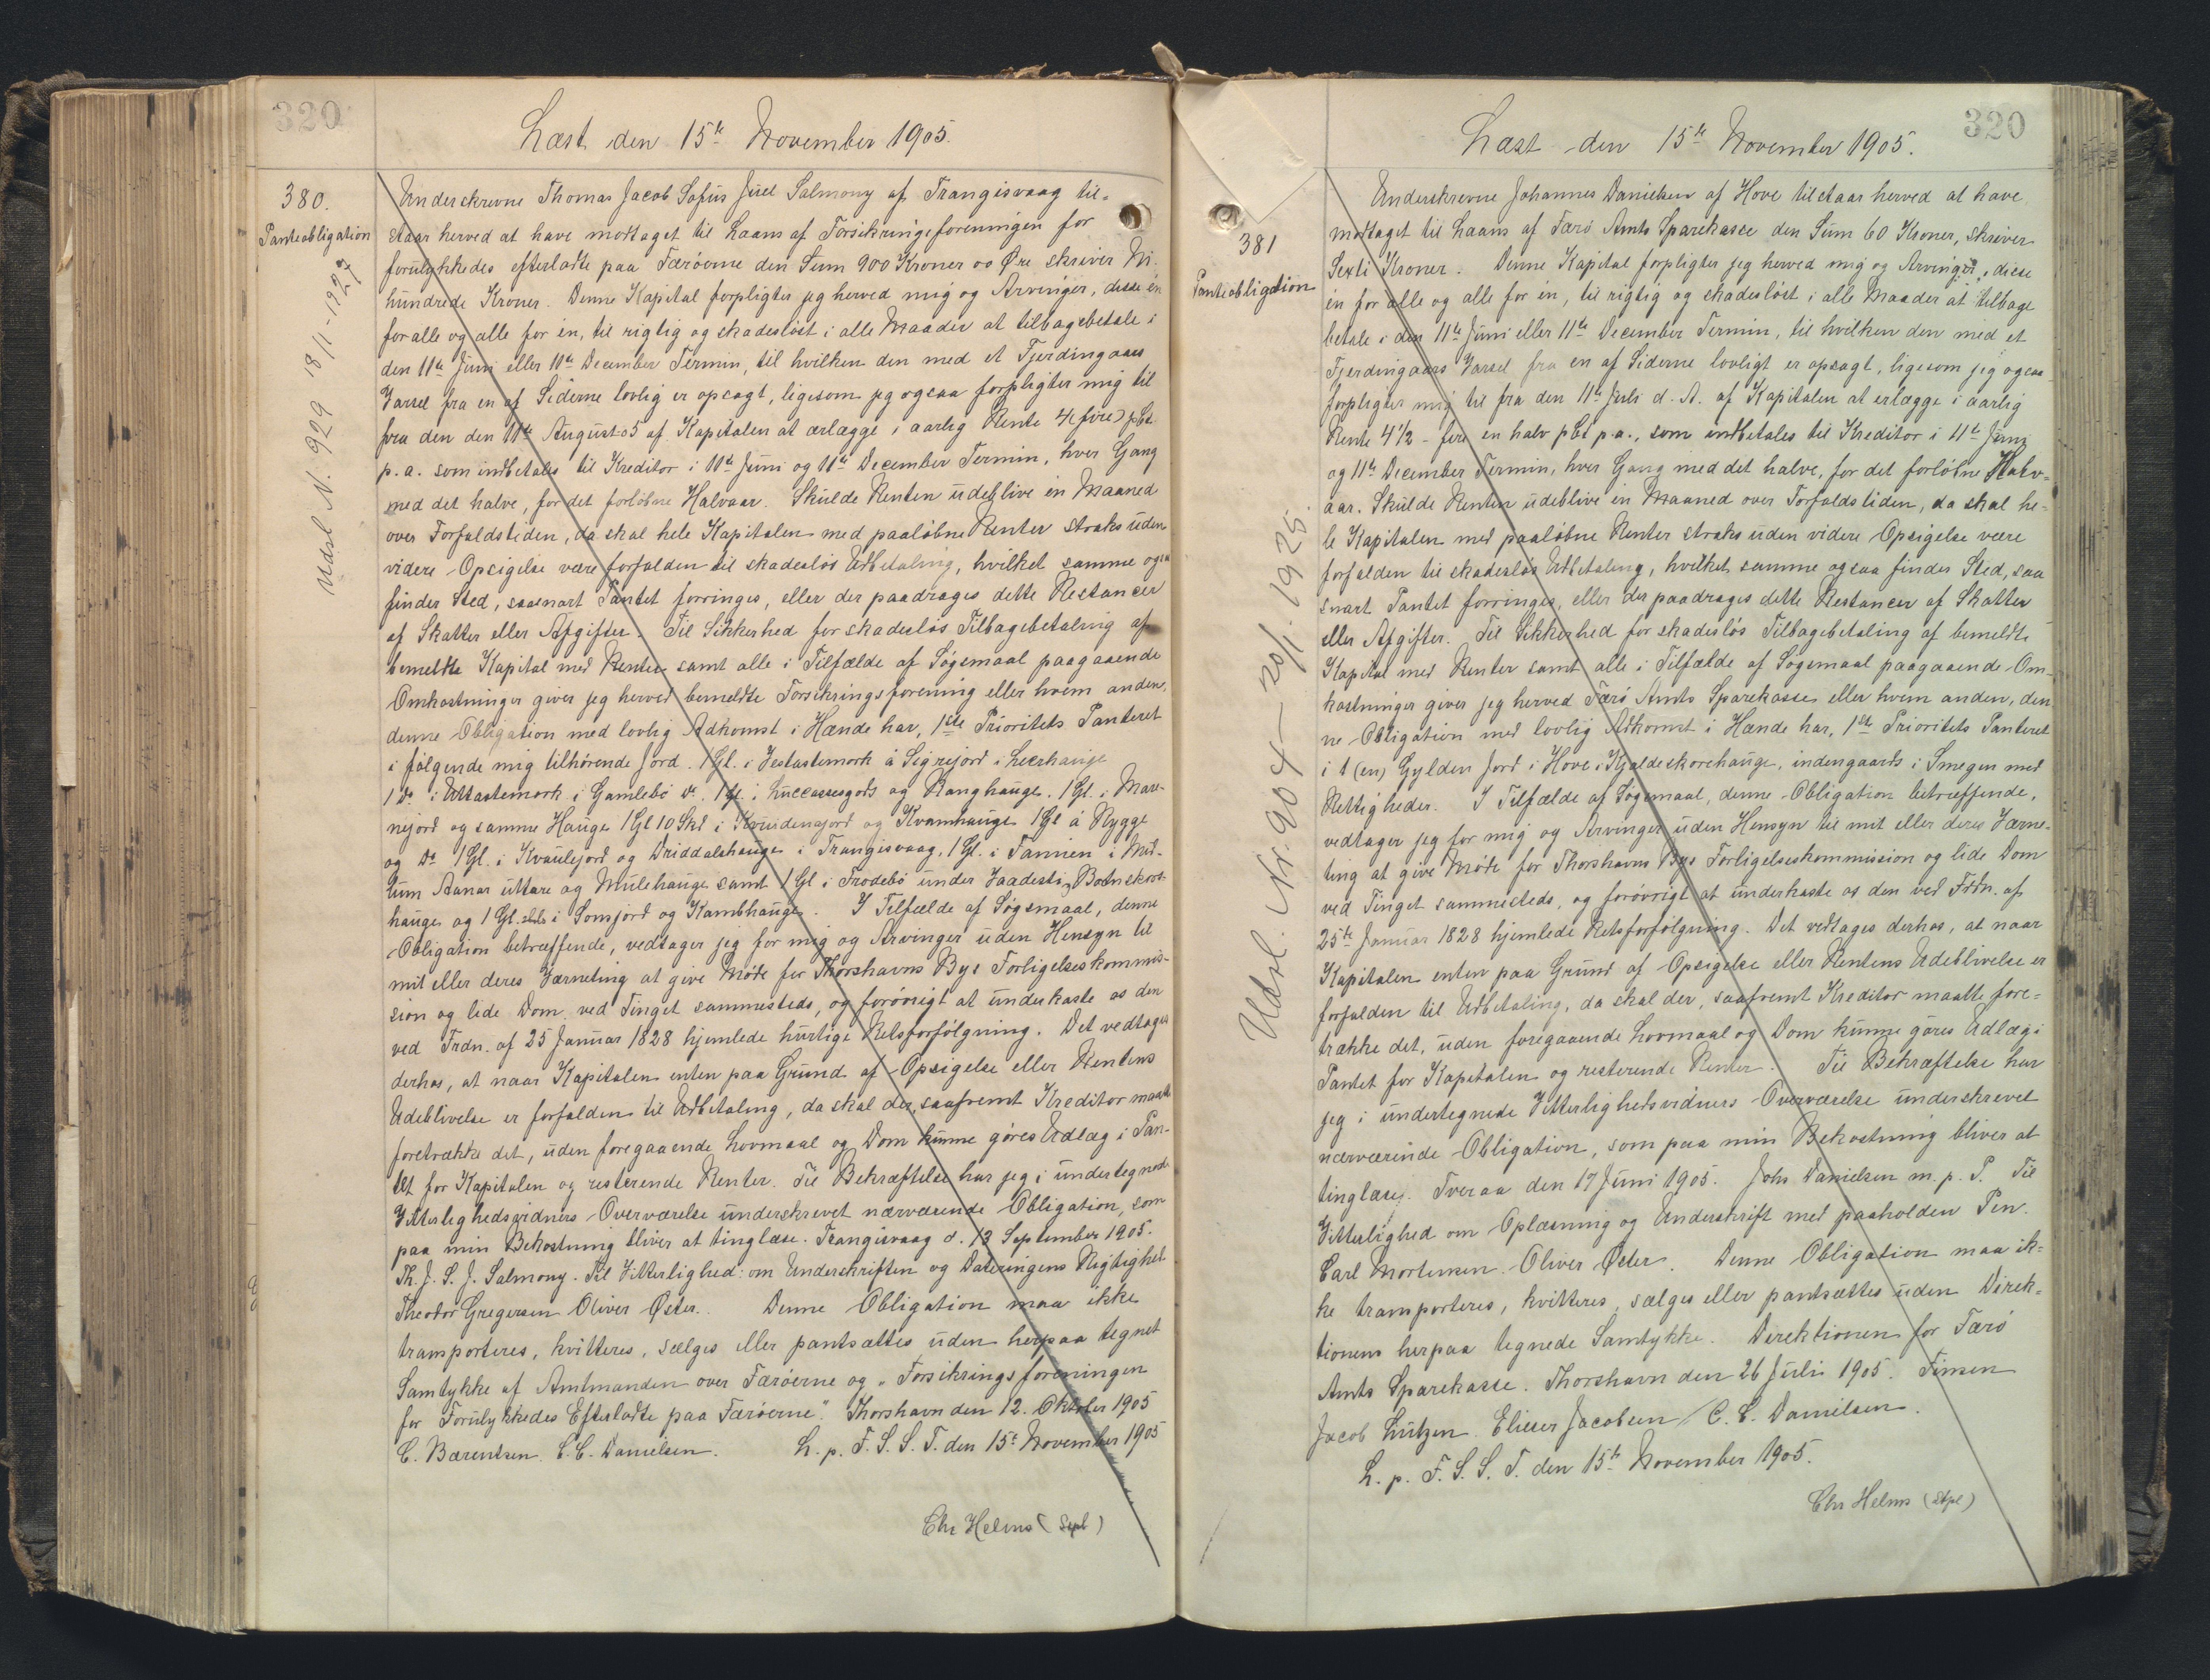 320
Læst den 15de November 1905.
380.
Panteobligation
Udsl N. 929 18/11-1927
Underskrevne Thomas Jacob Sofus Juel Salmony af Trangisvaag til-
staar herved at have modtaget til Laans af Forsikringsforeningen for
forulykkedes efterladte paa Færøerne den Sum 900 Kroner 00 Øre skriver Ni-
hundrede Kroner. Denne Kapital forpligter jeg herved mig og Arvinger, disse én
for alle og alle for én, til rigtig og skadesløst i alle Maader at tilbagebetale i
den 11te Juni eller 11te December Termin, til hvilken den med et Fjerdingaars
Varsel fra en af Siderne lovlig er opsagt, ligesom jeg ogsaa forpligter mig til
fra den den 11te August 05 af Kapitalen at erlægge i aarlig Rente 4 (fire) pCt.
p.a. som indbetales til Kreditor i 11te Juni og 11te December Termin, hver Gang
med det halve, for det forløbne Halvaar. Skulde Renten udeblive én Maaned
over Forfaldstiden, da skal hele Kapitalen med paaløbne Renter straks uden
videre Opsigelse være forfalden til skadesløs Udbetaling, hvilket samme ogsaa
finder Sted, saasnart Pantet forringes, eller der paadrages dette Restancer
af Skatter eller Afgifter. Til Sikkerhed for skadesløs Tilbagebetaling af
bemeldte Kapital med Renter samt alle i Tilfælde af Søgsmaal paagaaende
Omkostninger giver jeg herved bemeldte Forsikringsforening eller hvem anden,
denne Obligation med lovlig Adkomst i Hænde har, 1ste Prioritets Panteret
i følgende mig tilhørende Jord. 1 Gl. i Vestastemork á Signejord i Leerhauge
1 do i Uttastemork i Gamlebø do. 1 Gl. i Luccassesgods og Ranghauge. 1 Gl. i Mare-
nejord og samme Hauge 1 Gl 10 Skd i Kvuidenajord og Kvamhauge 1 Gl á Rygge
og do 1 Gl. i Kvaulejord og Driddalshauge i Trangisvaag, 1 Gl. i Tannen i Mid-
lum Aanar uttare og Mulehauge samt 1 Gl i Frodebø under Vaadesti, Botnskors-
hauge og 1 Gl. i Sonsjord og Kambhauge. I Tilfælde af Søgsmaal, denne
Obligation betræffende, vedtager jeg for mig og Arvinger uden Hensyn til
mit eller deres Værneting at give Møde for Thorshavns Bys Forligelseskommis-
sion og lide Dom ved Tinget sammesteds, og forøvrigt at underkaste os den
ved Frdn. af 25 Januar 1828 hjemlede hurtige Retsforfølgning. Det vedtages
derhos, at naar Kapitalen enten paa Grund af Opsigelse eller Rentens
Udeblivelse er forfalden til Udbetaling, da skal der, saafremt Kreditor maatte
foretrække det, uden foregaaende Lovmaal og Dom kunne gøres Udlæg i Pan-
tet for Kapitalen og resterende Renter. Til Bekræftelse har jeg i undertegnede
Vitterlighedsvidners Overværelse underskrevet nærværende Obligation, som
paa min Bekostning bliver at tinglæse. Trangisvaag d. 13 September 1905.
Th. J. S. J. Salmony. Til Vitterlighed: om Underskriften og Dateringens Rigtighet
Theodor Gregersen Oliver Øster. Denne Obligation maa ikke
transporteres, kvitteres, sælges eller pantsættes uden herpaa tegnet
Samtykke af Amtmanden over Færøerne og „Forsikringsforeningen
for Forulykkedes Efterladte paa Færøerne". Thorshavn den 12. Oktober 1905
C. Bærentsen. C. C. Danielsen. L. p. F. S. S. T. den 15de November 1905
Chr Helms (Sepl)
320
Læst den 15de November 1905.
381
Panteobligation
Udsl. Nr. 904 - 20/1. 1925.
Underskrevne Johannes Danielsen af Hove tilstaar herved at have
modtaget til Laans af Færø Amts Sparekasse den Sum 60 Kroner, skriver
Sexti Kroner. Denne Kapital forpligter jeg herved mig og Arvinger, disse
én for alle og alle for én, til rigtig og skadesløst i alle Maader at tilbage
betale i den 11te Juni eller 11te December Termin, til hvilken den med et
Fjerdingaars Varsel fra en af Siderne lovligt er opsagt, ligesom jeg ogsaa
forpligter mig til fra den 11te Juli d. A. af Kapitalen at erlægge i aarlig
Rente 4 1/2 - fire en halv pCt p.a., som indbetales til Kreditor i 11te Juni
og 11te December Termin, hver Gang med det halve, for det forløbne Halv-
aar. Skulde Renten udeblive én Maaned over Forfaldstiden, da skal he-
le Kapitalen med paaløbne Renter straks uden videre Opsigelse være
forfalden til skadesløs Udbetaling, hvilket samme ogsaa finder Sted, saa
snart Pantet forringes, eller der paadrages dette Restancer af Skatter
eller Afgifter. Til Sikkerhed for skadesløs Tilbagebetaling af bemeldte
Kapital med Renter samt alle i Tilfælde af Søgsmaal paagaaende Om-
kostninger giver jeg herved Færø Amts Sparekasse eller hvem anden, den
ne Obligation med lovlig Adkomst i Hænde har, 1ste Prioritets Panteret
i 1 (en) Gylden Jord i Hove i Kjaldeskorehauge, indengaards i Smegen med
Rettigheder. I Tilfælde af Søgsmaal, denne Obligation betræffende,
vedtager jeg for mig og Arvinger uden Hensyn til mit eller deres Værne-
ting at give Møde for Thorshavns Bys Forligelseskommission og lide Dom
ved Tinget sammesteds, og forøvrigt at underkaste os den ved Frdn. af
25de Januar 1828 hjemlede Retsforfølgning. Det vedtages derhos, at naar
Kapitalen enten paa Grund af Opsigelse eller Rentens Udeblivelse er
forfalden til Udbetaling, da skal der, saafremt Kreditor maatte fore-
trække det, uden foregaaende Lovmaal og Dom kunne gøres Udlæg i
Pantet for Kapitalen og resterende Renter. Til Bekræftelse har
jeg i undertegnede Vitterlighedsvidners Overværelse underskrevet
nærværende Obligation, som paa min Bekostning bliver at
tinglæse. Tveraa den 17 Juni 1905. Johs Danielsen m. p. P. Til
Vitterlighed om Oplæsning og Underskrift med paaholden Pen.
Carl Mortensen. Oliver Øster. Denne Obligation maa ik-
ke transporteres, kvitteres, sælges eller pantsættes uden Direk-
tionens herpaa tegnede Samtykke. Direktionen for Færø
Amts Sparekasse. Thorshavn den 26 Juli 1905. Finsen
Jacob Lützen. Elieser Jacobsen / C. C. Danielsen.
L. p. F. S. S. T. den 15de November 1905.
Chr Helms (Sepl)